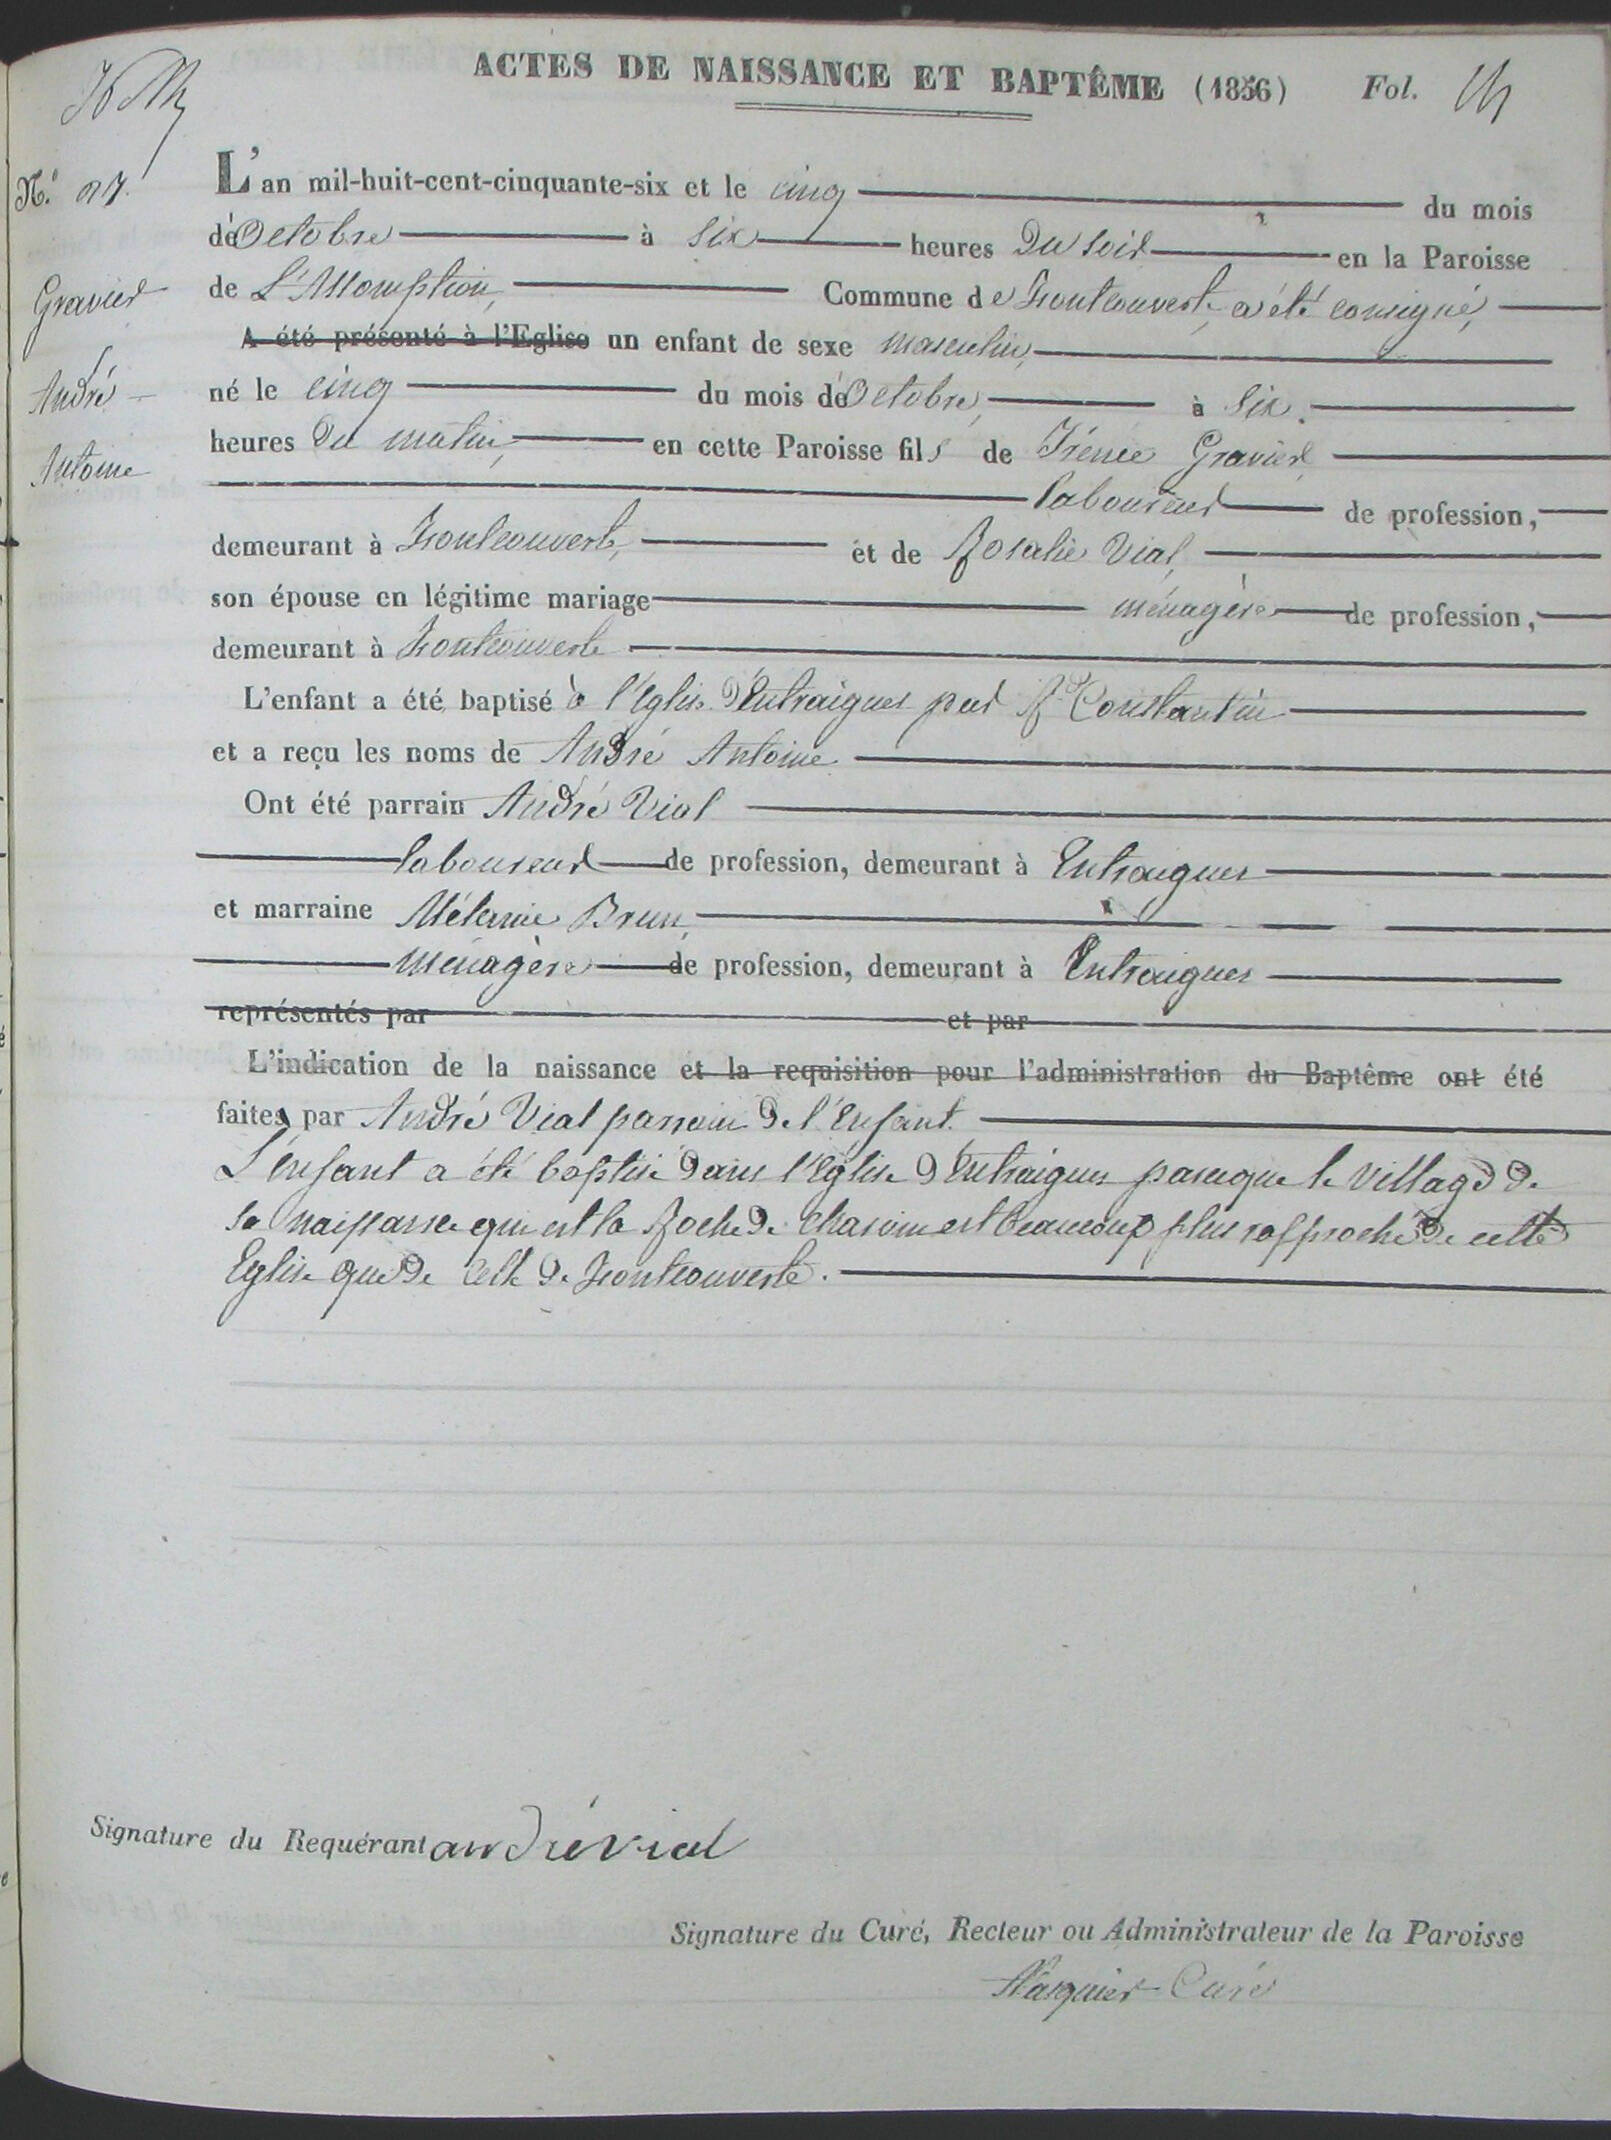 ACTES DE NAISSANCE ET BAPTÊME (1856) Fol. 14
N.° 27.
L'an mil-huit-cent-cinquante-six et le cinq du mois
de Octobre à six heures Du soir en la Paroisse
Gravier
de L'Assomption, Commune de Fontcouverte, a été consigné,
A été présenté à l'Eglise un enfant de sexe masculin,
André
né le cinq du mois de Octobre, à six.
Antoine
heures Du matin, en cette Paroisse fils de Irénée Gravier
laboureur de profession,
demeurant à Fontcouverte, et de Rosalie Vial,
son épouse en légitime mariage ménagère de profession,
demeurant à Fontcouverte
L'enfant a été baptisé à l'Eglise D'Entraigues par Rd Constantin
et a reçu les noms de André Antoine
Ont été parrain André Vial
laboureur de profession, demeurant à Entraigues
et marraine Mélanie Brun,
ménagère de profession, demeurant à Entraigues
représentés par et par
L'indication de la naissance et la requisition pour l'administration du Baptême ont été
faites par André Vial parrain De l'Enfant.
L'enfant a été baptisé Dans l'Eglise D'Entraigues parceque le village De
sa naissance qui est la Roche De Charvin est beaucoup plus rapproché De cette
Eglise que De celle De Fontcouverte.
Signature du Requérant andré vial
Signature du Curé, Recteur ou Administrateur de la Paroisse
Curé